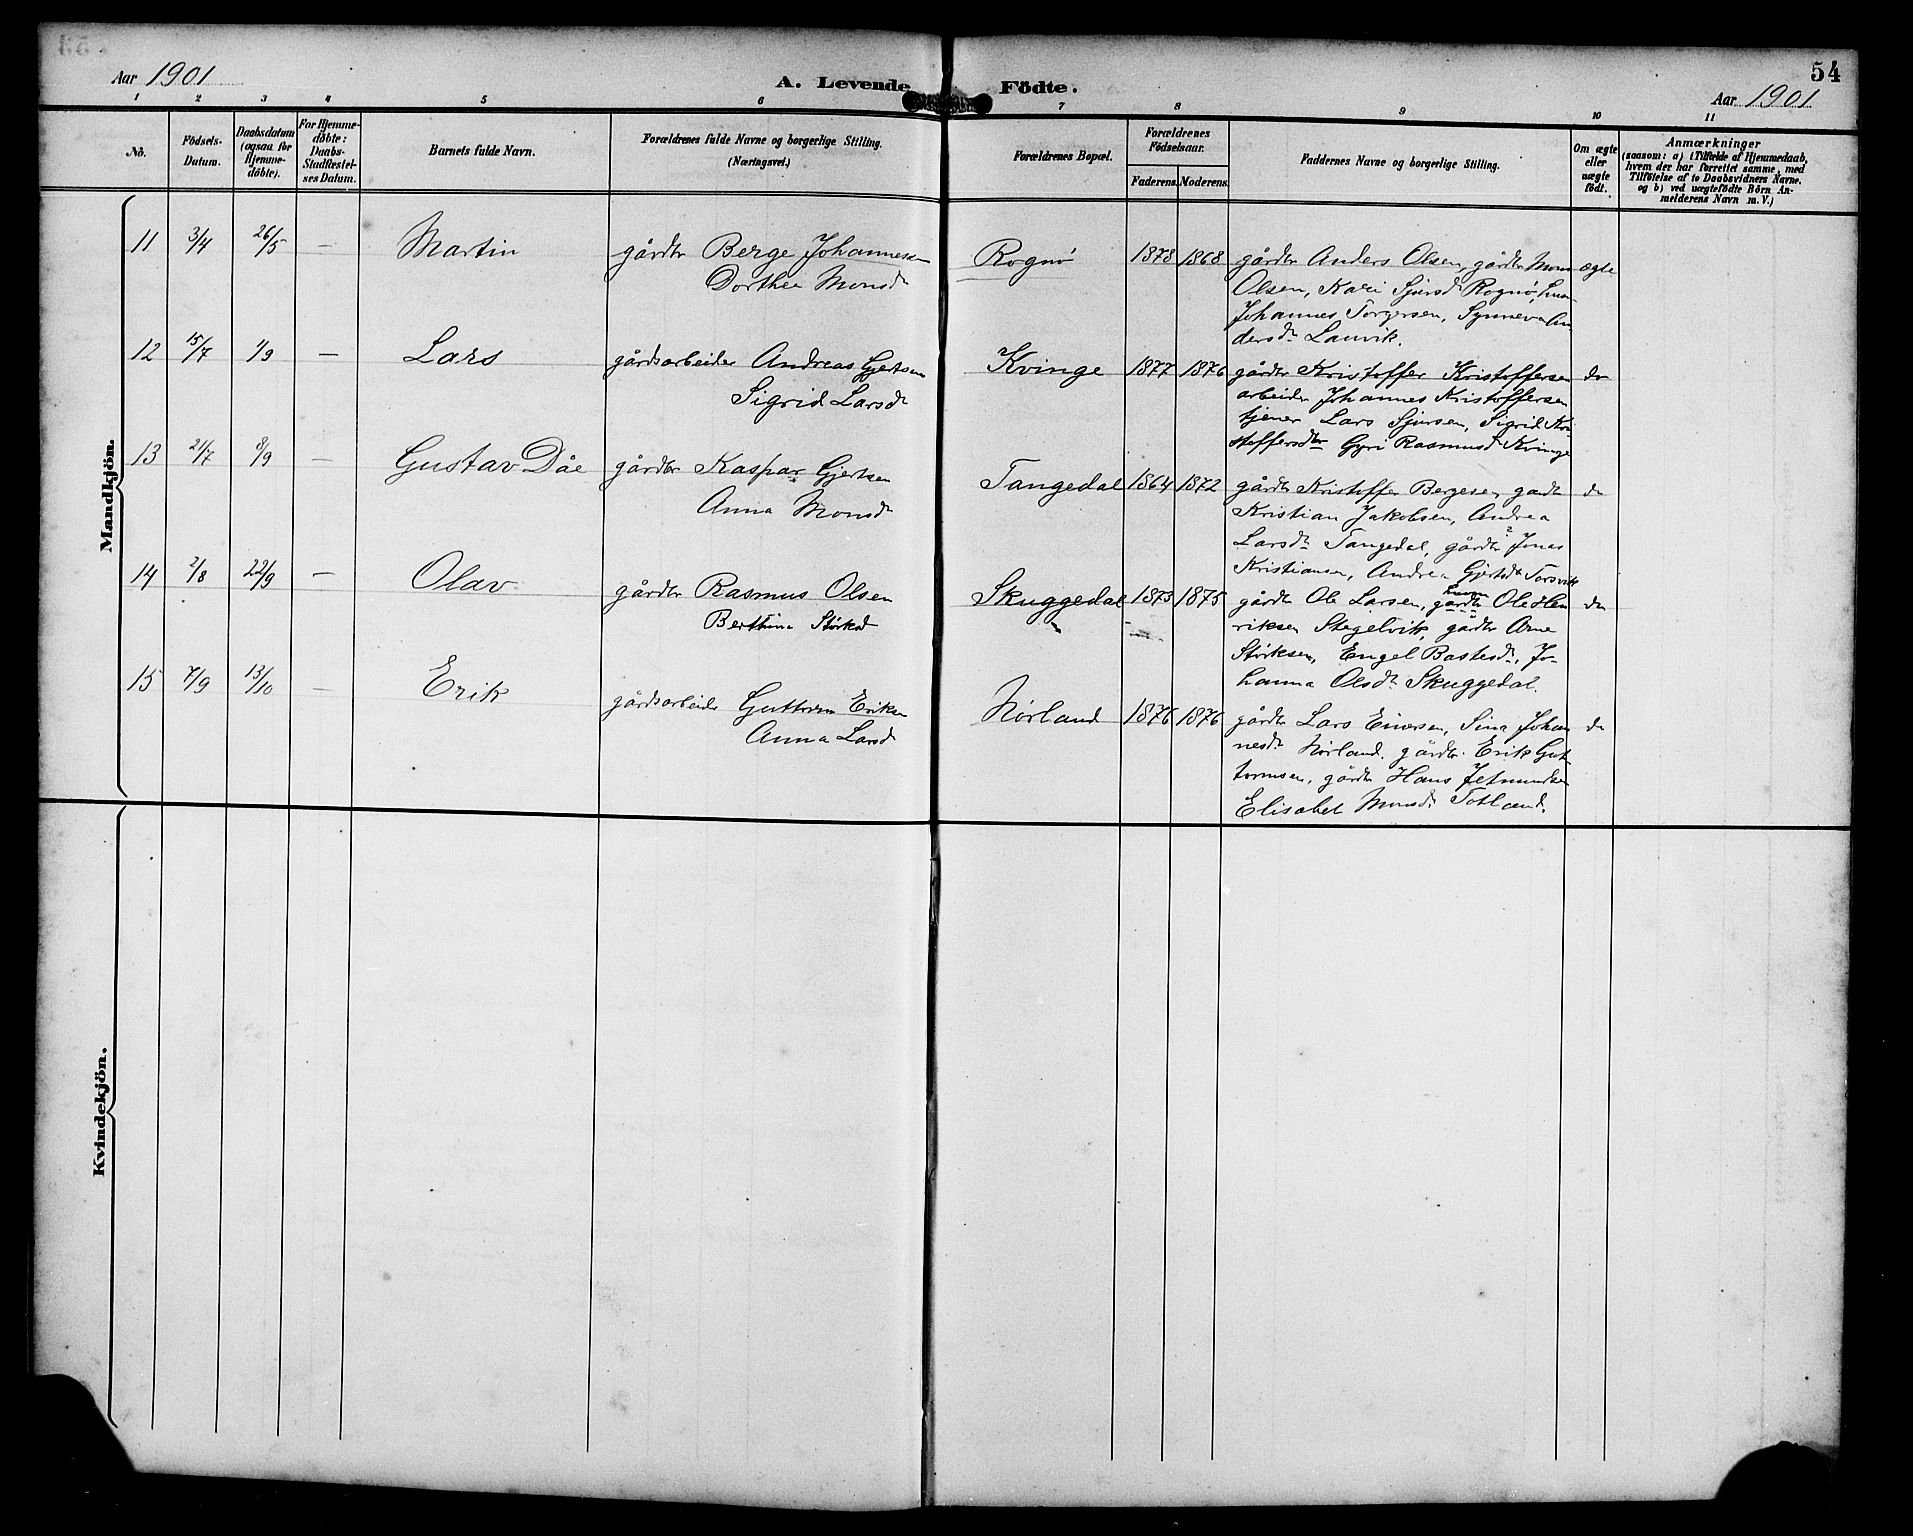 54
Aar 1901
A. Levende Födte.
Aar 1901
1 2 3 4 5 6 7 8 9 10 11
No.
Födsels-
Datum.
Daabsdatum
(ogsaa for
Hjemme-
döbte).
For Hjemme-
döbte:
Daabs-
Stadfæstel-
ses Datum.
Barnets fulde Navn.
Forældrenes fulde Navne og borgerlige Stilling.
(Næringsvei.)
Forældrenes Bopæl.
Forældrenes
Födselsaar.
Faderens. Moderens.
Faddernes Navne og borgerlige Stilling.
Om ægte
eller
uægte
födt.
Anmærkninger
(saasom: a) i Tilfælde af Hjemmedaab,
hvem der har forrettet samme, med
Tilföielse af to Daabsvidners Navne.
og b) ved uægtefödte Börn An-
melderens Navn m. V.)
Mandkjön.
11 3/4 26/5 — Martin gårdbr Berge Johannesen Rognø 1878 1868 gårdbr Anders Olsen, gårdbr Mons ægte
Dorthea Monsdr Olsen, Kari Sjursdr Rognø,
Johannes Torgersen, Synneva An-
dersdr Lauvik.
12 15/7 1/9 — Lars gårdsarbeider Andreas Gjertsen Kvinge 1877 1876 gårdbr Kristoffer Kristoffersen do
Sigrid Larsdr arbeider Johannes Kristoffersen
tjener Lars Sjursen, Sigrid Kri-
stoffersdtr Gyri Rasmusdr Kvinge
13 21/7 8/9 — Gustav Dåe gårdbr Kaspar Gjertsen Tangedal 1864 1872 gårdbr Kristoffer Bergesen gårdbr do
Anna Monsdr Kristian Jakobsen, Andrea
Larsdr Tangedal, gårdbr Jonas
Kristiansen, Andrea Gjertsdr Torsvik
14 2/8 22/9 — Olav gårdbr Rasmus Olsen Skuggedal 1873 1875 gårdbr Ole Larsen, gårdbr Ole Hen do
Berthina Størksd riksen Stegelvik, gårdbr Arne
Størksen, Engel Bastesdr, Jo-
hanna Olsdr Skuggedal.
15 7/9 13/10 — Erik gårdsarbeider Guttorm Eriksen Nørland 1876 1876 gårdbr Lars Einersen, Sina Johan do
Anna Larsd nesdr Nørland. gårdbr. Erik Gut-
tormsen, gårdbr Hans Jetmundsen
Elisabet Monsdr Totland.
Kvindekjön.